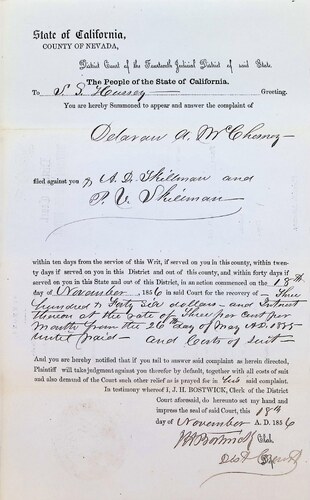 State of California,
COUNTY OF NEVADA,
District Court of the Fourteenth Judicial District of said State.
The People of the State of California.
To S. S. Hussey Greeting.
You are hereby Summoned to appear and answer the complaint of
Delavan A. McChesney
filed against you & A. D. Skillman and
P. V. Skillman
within ten days from the service of this Writ, if served on you in this county, within twen-
ty days if served on you in this District and out of this county, and within forty days if
served on you in this State and out of this District, in an action commenced on the 18th
day of November, 1856 in said Court for the recovery of Three
hundred & Forty six dollars and Interest
thereon at the rate of Three per cent per
Month from the 26th day of May A.D. 1855
until paid and Costs of Suit
And you are hereby notified that if you fail to answer said complaint as herein directed,
Plaintiff will take judgment against you therefor by default, together with all costs of suit
and also demand of the Court such other relief as is prayed for in his said complaint.
In testimony whereof I, J. H. BOSTWICK, Clerk of the District
Court aforesaid, do hereunto set my hand and
impress the seal of said Court, this 18th
day of November A. D. 1856
J H Bostwick Clerk.
Dist Court